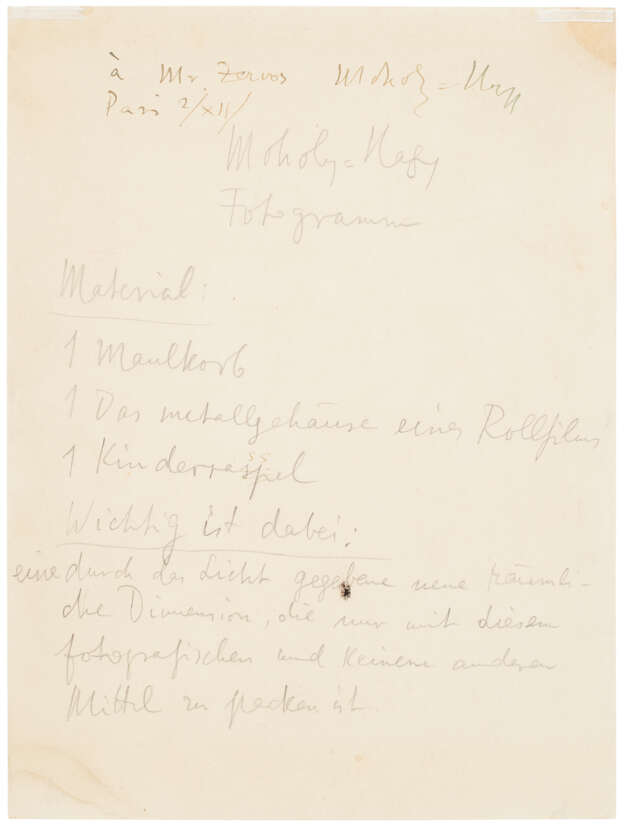 à Mr. Zervos Moholy=Nagy
Paris 2/XII/
Moholy=Nagy
Fotogramm
Material:
1 Maulkorb
1 Das Metallgehäuse eines Rollfilms
1 Kinderraspel
ss
Wichtig ist dabei:
eine durch das Licht gegebene neue räumli-
che Dimension, die nur mit diesem
fotografischen und keinem anderen
Mittel zu packen ist.